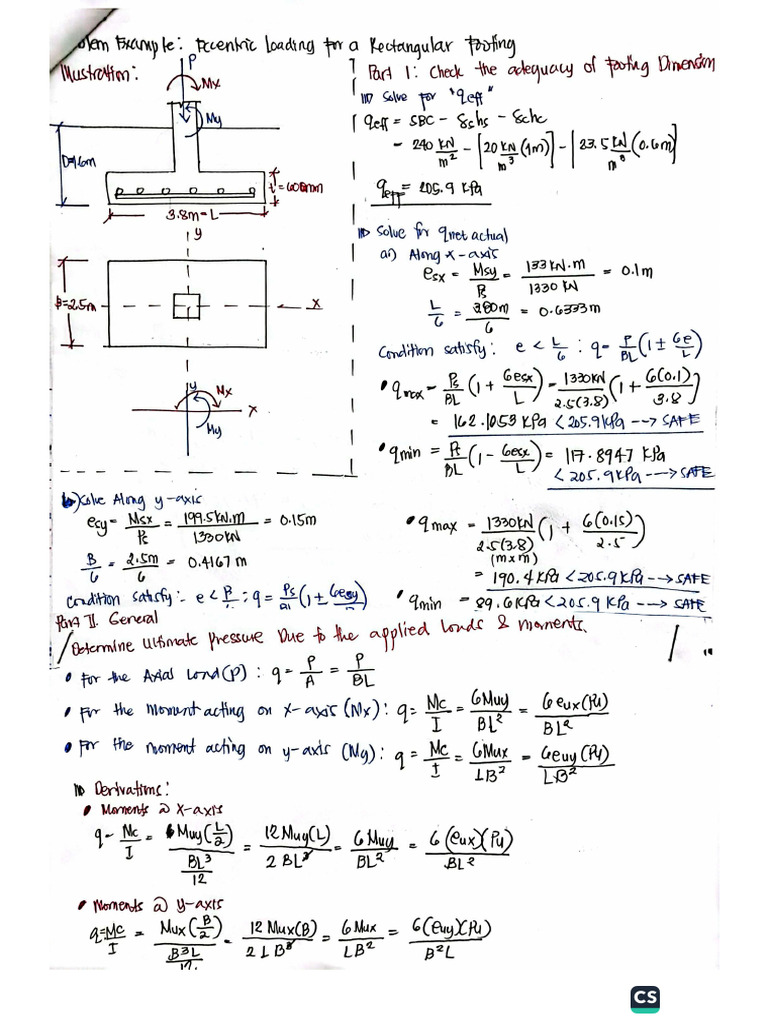 Example: Eccentric Loading for a Rectangular Footing
Illustration:
P
Mx
My
D=1.6m
t=600mm
3.8m=L
y
B=2.5m
x
y
Mx
x
My
Part I: Check the adequacy of Footing Dimension
Solve for "qeff"
qeff = SBC - γshs - γchc
= 240 KN/m² - [20 KN/m³ (1m)] - [23.5 KN/m³ (0.6m)]
qeff = 205.9 KPa
Solve for qnet actual
a) Along x-axis
esx = Msy/Ps = 133 KN.m/1330 KN = 0.1m
L/6 = 3.80m/6 = 0.6333m
Condition satisfy: e < L/6 : q = P/BL (1 ± 6e/L)
qmax = Ps/BL (1 + 6esx/L) = 1330KN/2.5(3.8) (1 + 6(0.1)/3.8)
= 162.1053 KPa < 205.9 KPa --> SAFE
qmin = P/BL (1 - 6esx/L) = 117.8947 KPa
< 205.9 KPa --> SAFE
b) Solve Along y-axis
esy = Msx/Ps = 199.5KN.m/1330KN = 0.15m
B/6 = 2.5m/6 = 0.4167 m
Condition satisfy: e < B/6 ; q = Ps/BL (1 ± 6esy/
qmax = 1330KN/2.5(3.8) (1 + 6(0.15)/2.5)
(m x m)
= 190.4 KPa < 205.9 KPa --> SAFE
qmin = 89.6 KPa < 205.9 KPa --> SAFE
Part II. General
Determine Ultimate pressure Due to the applied loads & moments.
• For the Axial Load (P) : q = P/A = P/BL
• For the moment acting on x-axis (Mx) : q = Mc/I = 6Muy/BL² = 6eux(Pu)/BL²
• For the moment acting on y-axis (My) : q = Mc/I = 6Mux/LB² = 6euy(Pu)/LB²
Derivations:
• Moments @ x-axis
q = Mc/I = Muy(L/2)/(BL³/12) = 12Muy(L)/2BL³ = 6Muy/BL² = 6(eux)(Pu)/BL²
• Moments @ y-axis
q = Mc/I = Mux(B/2)/(B³L/12) = 12Mux(B)/2LB³ = 6Mux/LB² = 6(euy)(Pu)/B²L
CS